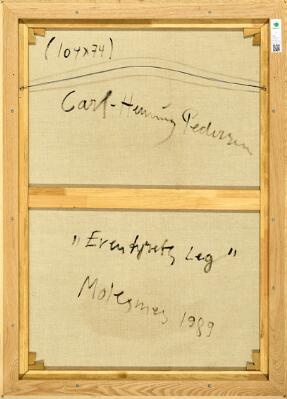 (104x74)
Carl-Henning Pedersen
"Eventyrets Leg"
Molesmes 1989